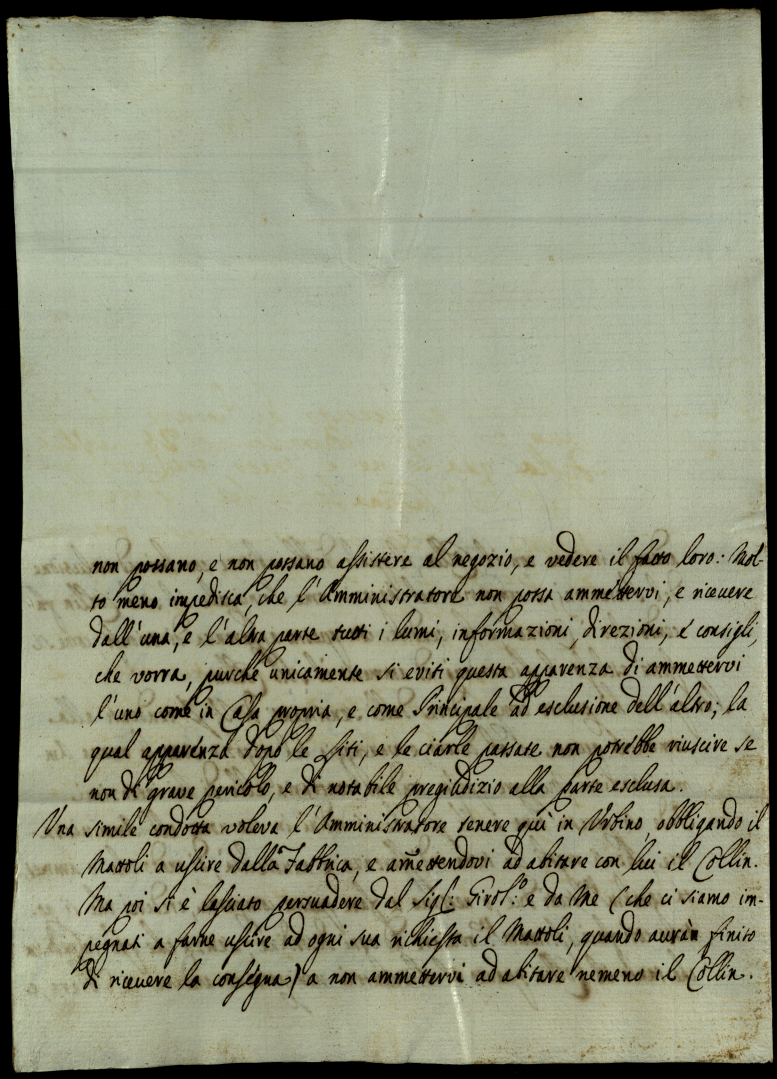 non possano, e non possano assistere al negozio, e vedere il fatto loro: Mol-
to meno impedisca, che l'Amministratore non possa ammettervi, e ricevere
dall'una, e l'altra parte tutti i lumi, informazioni, direzioni, e consigli,
che vorra, purche unicamente si eviti questa apparenza di ammettervi
l'uno come in Casa propria, e come Principale ad esclusione dell'altro; la
qual apparenza dopo le liti, e le ciarle passate non potrebbe riuscire se
non di grave pericolo, e di notabile pregiudizio alla parte esclusa.
Una simile condotta voleva l'Amministratore tenere quì in Urbino, obbligando il
Mattoli a uscire dalla Fabbrica, e am̃ettendovi ad abitare con lui il Collin.
Ma poi si è lasciato persuadere dal Sig.: Girol.º e da Me (che ci siamo im-
pegnati a farne uscire ad ogni sua richiesta il Mattoli, quando auràn finito
di ricevere la consegna) a non ammettervi ad abitare nemeno il Collin.